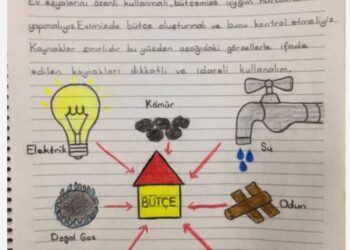 Ev eşyalarını özenli kullanmalı, bütçemize uygun
yapmalıyız. Evimizde bütçe oluşturmalı ve bunu kontrol etmeliyiz.
Kaynaklar sınırlıdır bu yüzden aşağıdaki görsellerle ifade
edilen kaynakları dikkatli ve idareli kullanalım.
Kömür
Elektrik
Su
BÜTÇE
Odun
Doğal Gaz